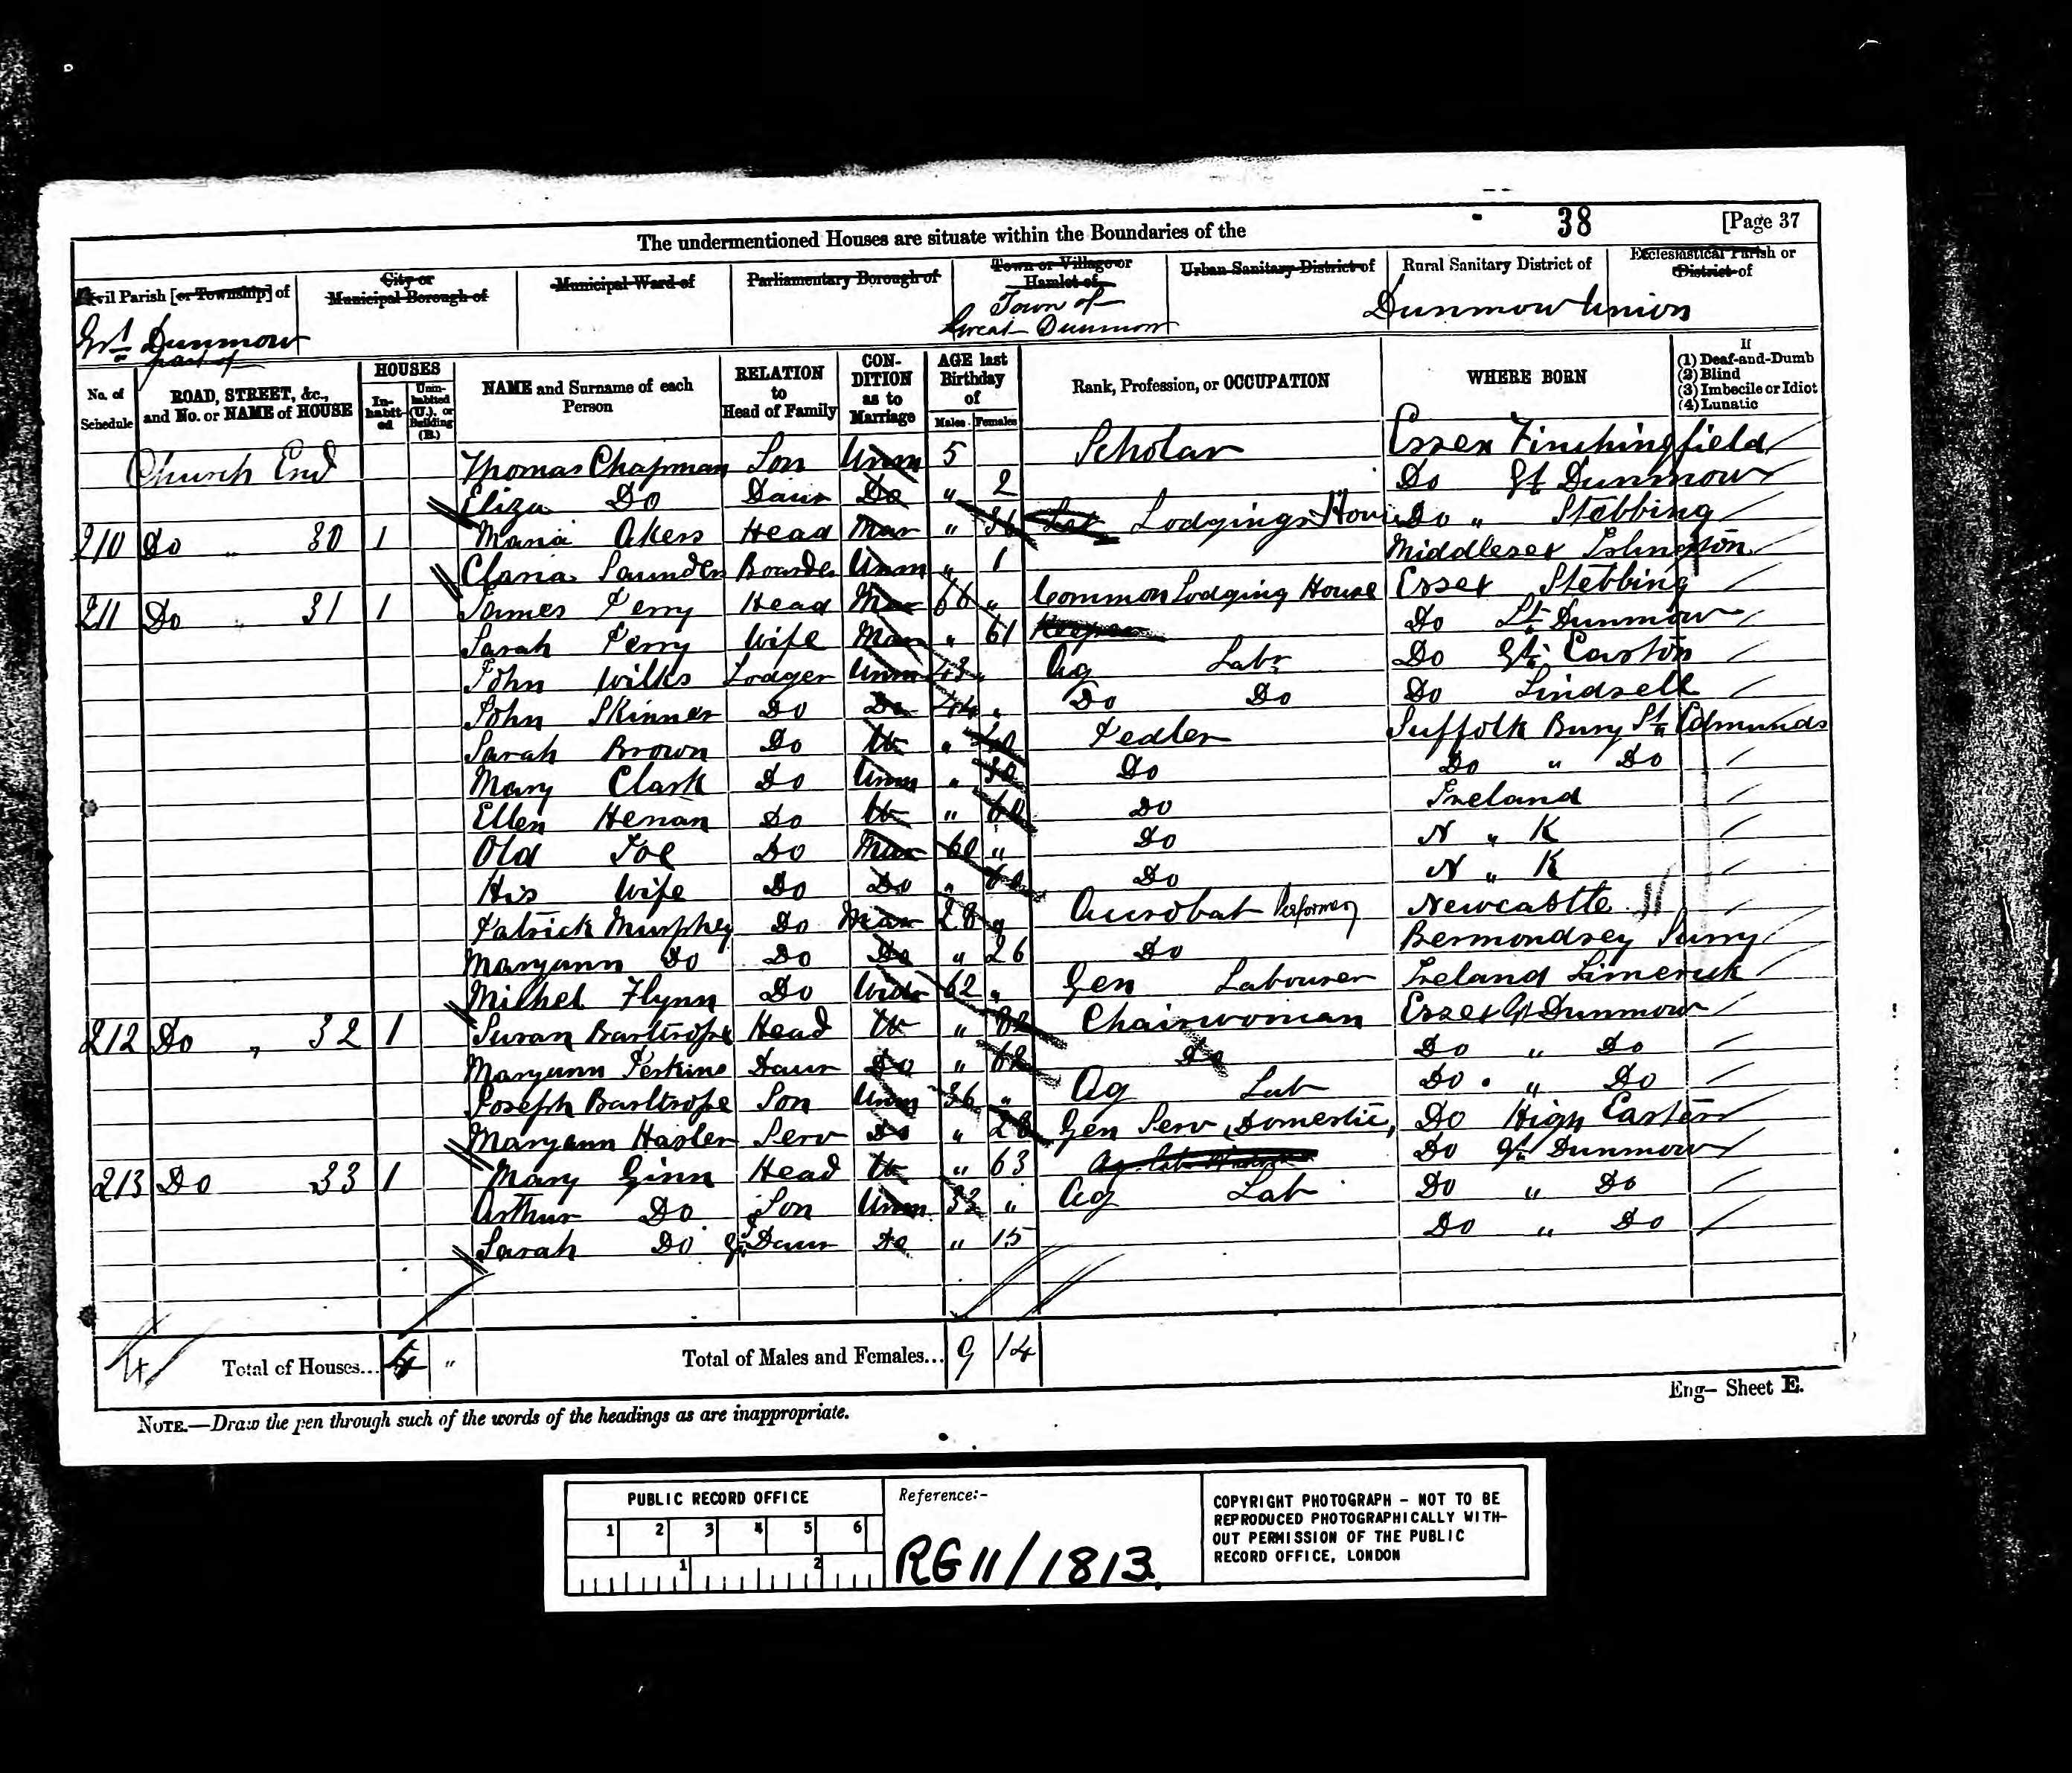 38 [Page 37
The undermentioned Houses are situate within the Boundaries of the
Civil Parish [or Township] of City or Municipal Borough of Municipal Ward of Parliamentary Borough of Town or Village or Hamlet of Urban Sanitary District of Rural Sanitary District of Ecclesiastical Parish or District of
Grt Dunmow part of Town of Great Dunmow Dunmow Union
No. of Schedule ROAD, STREET, &c., and No. or NAME of HOUSE HOUSES In-habit-ed Unin-habited (U.), or Building (B.) NAME and Surname of each Person RELATION to Head of Family CON-DITION as to Marriage AGE last Birthday of Males Females Rank, Profession, or OCCUPATION WHERE BORN If (1) Deaf-and-Dumb (2) Blind (3) Imbecile or Idiot (4) Lunatic
Church End Thomas Chapman Son Unm 5 Scholar Essex Finchingfield
Eliza Do Daur Do " 2 Do Gt Dunmow
210 Do " 30 1 Maria Akers Head Mar " 36 Lodgings House Do " Stebbing
Claria Saunders Boarder Unm " 1 Middlesex Islington
211 Do " 31 1 James Perry Head Mar 66 " Common Lodging House Essex Stebbing
Sarah Perry Wife Mar " 61 Keeper Do Lt Dunmow
John Wilks Lodger Unm 43 " Ag Labr Do Gt Easton
John Skinner Do Do 44 " Do Do Do Lindsell
Sarah Brown Do W " 40 Pedler Suffolk Bury St Edmunds
Mary Clark Do Unm " 30 Do Do " Do
Ellen Henan Do W " 60 Do Ireland
Old Joe Do Mar 60 " Do N " K
His Wife Do Do " 60 Do N " K
Patrick Murphey Do Mar 28 " Accrobat Performer Newcastle
Maryann Do Do Do " 26 Do Bermondsey Surry
Michel Flynn Do Widr 62 " Gen Labourer Ireland Limerick
212 Do " 32 1 Susan Bartrope Head W " 82 Chairwoman Essex Gt Dunmow
Maryann Perkins Daur Do " 62 Do Do " Do
Joseph Bartrope Son Unm 36 " Ag Lab Do " Do
Maryann Hasler Serv Do " 28 Gen Serv, Domestic, Do High Easter
213 Do 33 1 Mary Ginn Head W " 63 Do Gt Dunmow
Arthur Do Son Unm 32 " Ag Lab Do " Do
Sarah Do Gr Daur Do " 15 Do " Do
4 Total of Houses... 4 " Total of Males and Females... 9 14
Eng— Sheet E.
NOTE.—Draw the pen through such of the words of the headings as are inappropriate.
PUBLIC RECORD OFFICE
1 2 3 4 5 6
1 2
Reference:-
RG 11/1813
COPYRIGHT PHOTOGRAPH - NOT TO BE
REPRODUCED PHOTOGRAPHICALLY WITH-
OUT PERMISSION OF THE PUBLIC
RECORD OFFICE, LONDON